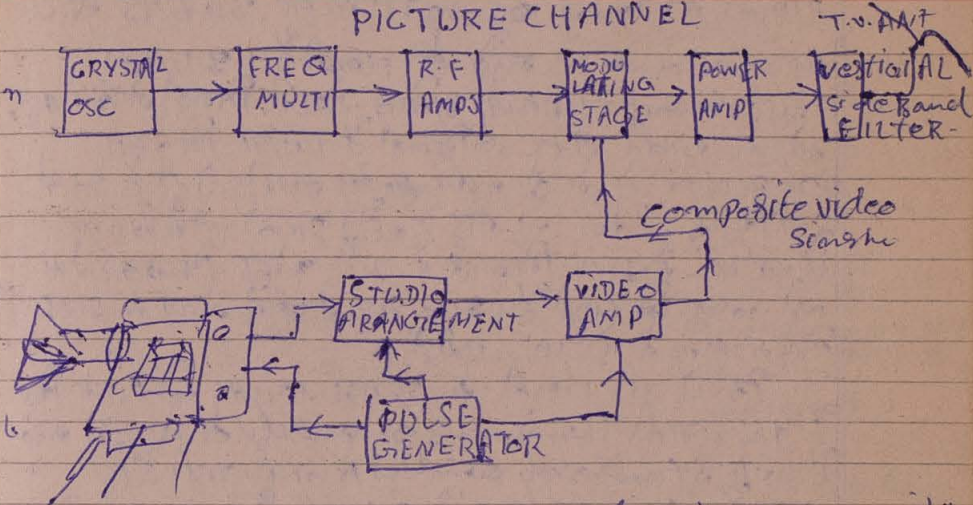 PICTURE CHANNEL
T.V. ANT
CRYSTAL
OSC
FREQ
MULTI
R.F
AMPS
MODU
LATING
STAGE
POWER
AMP
vestigial AL
side Band
FILTER-
composite video
STUDIO
ARANGEMENT
VIDEO
AMP
PULSE
GENERATOR